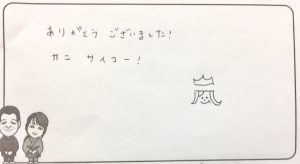 ありがとう ございました!
カニ サイコー!